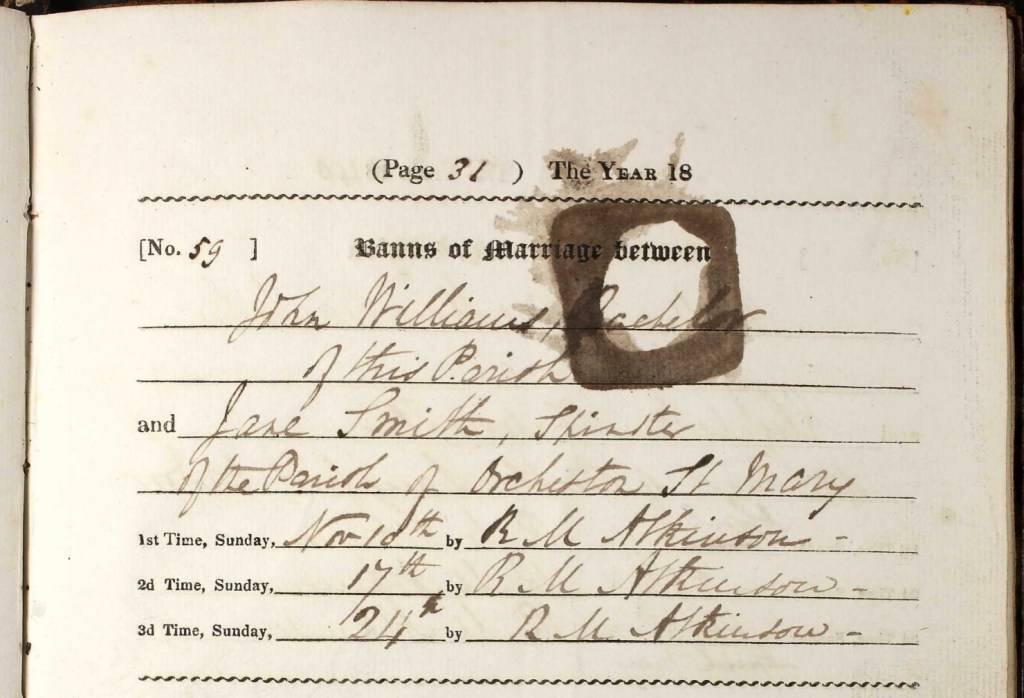 (Page 31 ) The YEAR 18
[No. 59 ] Banns of Marriage between
John Williams, Bachelor
of this Parish
and Jane Smith, Spinster
of the Parish of Orcheston St Mary
1st Time, Sunday, Nov 10th by R M Atkinson -
2d Time, Sunday, 17th by R M Atkinson -
3d Time, Sunday, 24th by R M Atkinson -